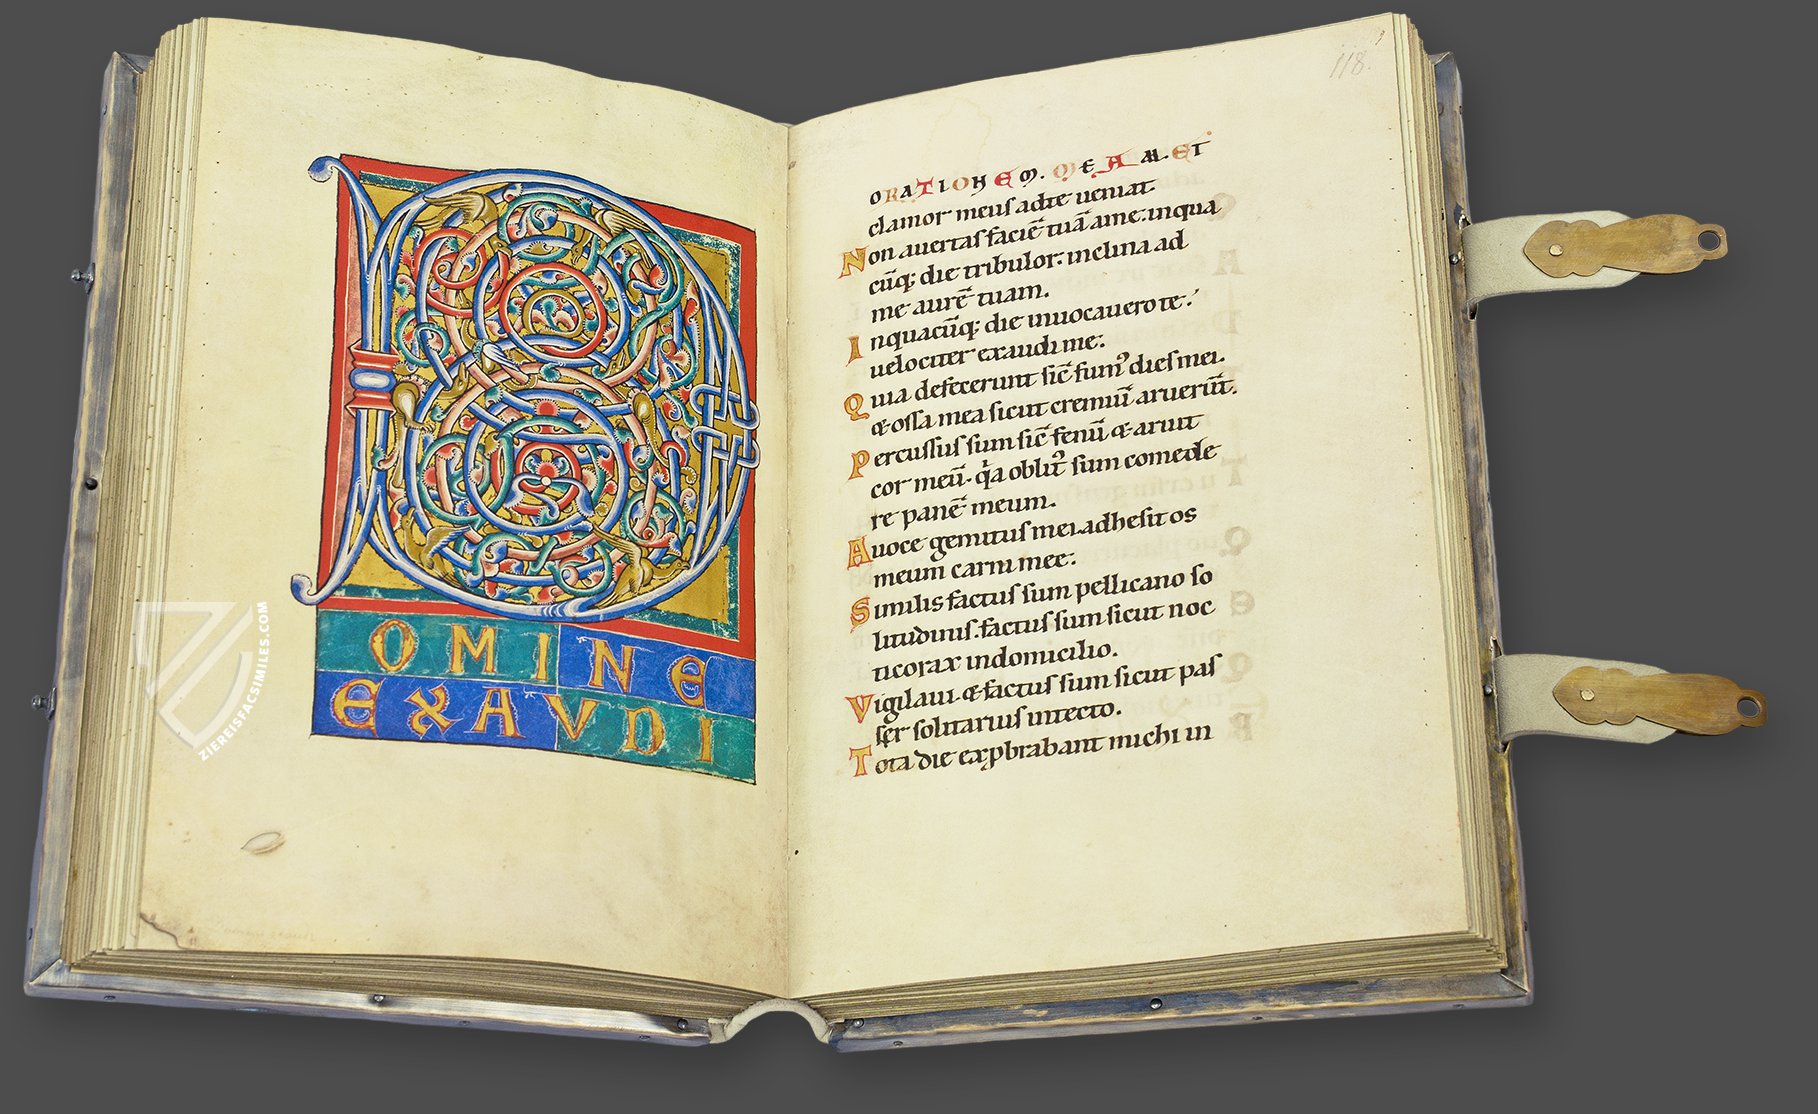 D
OMINE
EXAVDI
118.
ORATIONEM. MEAM. ET
clamor meuſ adte ueniat.
Non auertaſ faciē tuā ame: inqua
cūq; die tribulor: inclina ad
me aurē tuam.
Inquacūq; die inuocauero te:
uelociter exaudi me:
Quia defecerunt ſic̄ fum᾽ dieſ mei.
& oſſa mea ſicut cremiū aruerūt.
Percuſſuſ ſum ſic̄ fenū & aruit
cor meū. qͥa oblit᾽ ſum comede
re panē meum.
Auoce gemituſ mei adheſit os
meum carni mee:
Similis factuſ ſum pellicano ſo
litudiniſ. factuſ ſum ſicut noc
ticorax indomicilio.
Vigilaui. & factuſ ſum ſicut paſ
ſer ſolitariuſ intecto.
Tota die exꝓbrabant michi in
ZIEREISFACSIMILES.COM